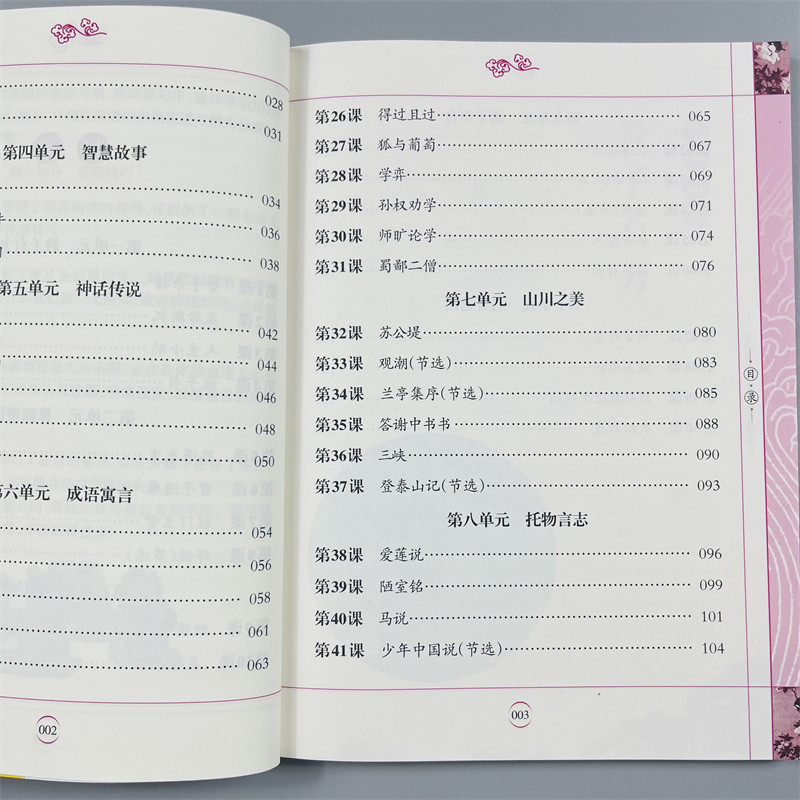 028
031
第四单元 智慧故事
034
036
038
第五单元 神话传说
042
044
046
048
050
第六单元 成语寓言
054
056
058
061
063
002
第26课 得过且过 065
第27课 狐与葡萄 067
第28课 学弈 069
第29课 孙权劝学 071
第30课 师旷论学 074
第31课 蜀鄙二僧 076
第七单元 山川之美
第32课 苏公堤 080
第33课 观潮(节选) 083
第34课 兰亭集序(节选) 085
第35课 答谢中书书 088
第36课 三峡 090
第37课 登泰山记(节选) 093
第八单元 托物言志
第38课 爱莲说 096
第39课 陋室铭 099
第40课 马说 101
第41课 少年中国说(节选) 104
003
目·录